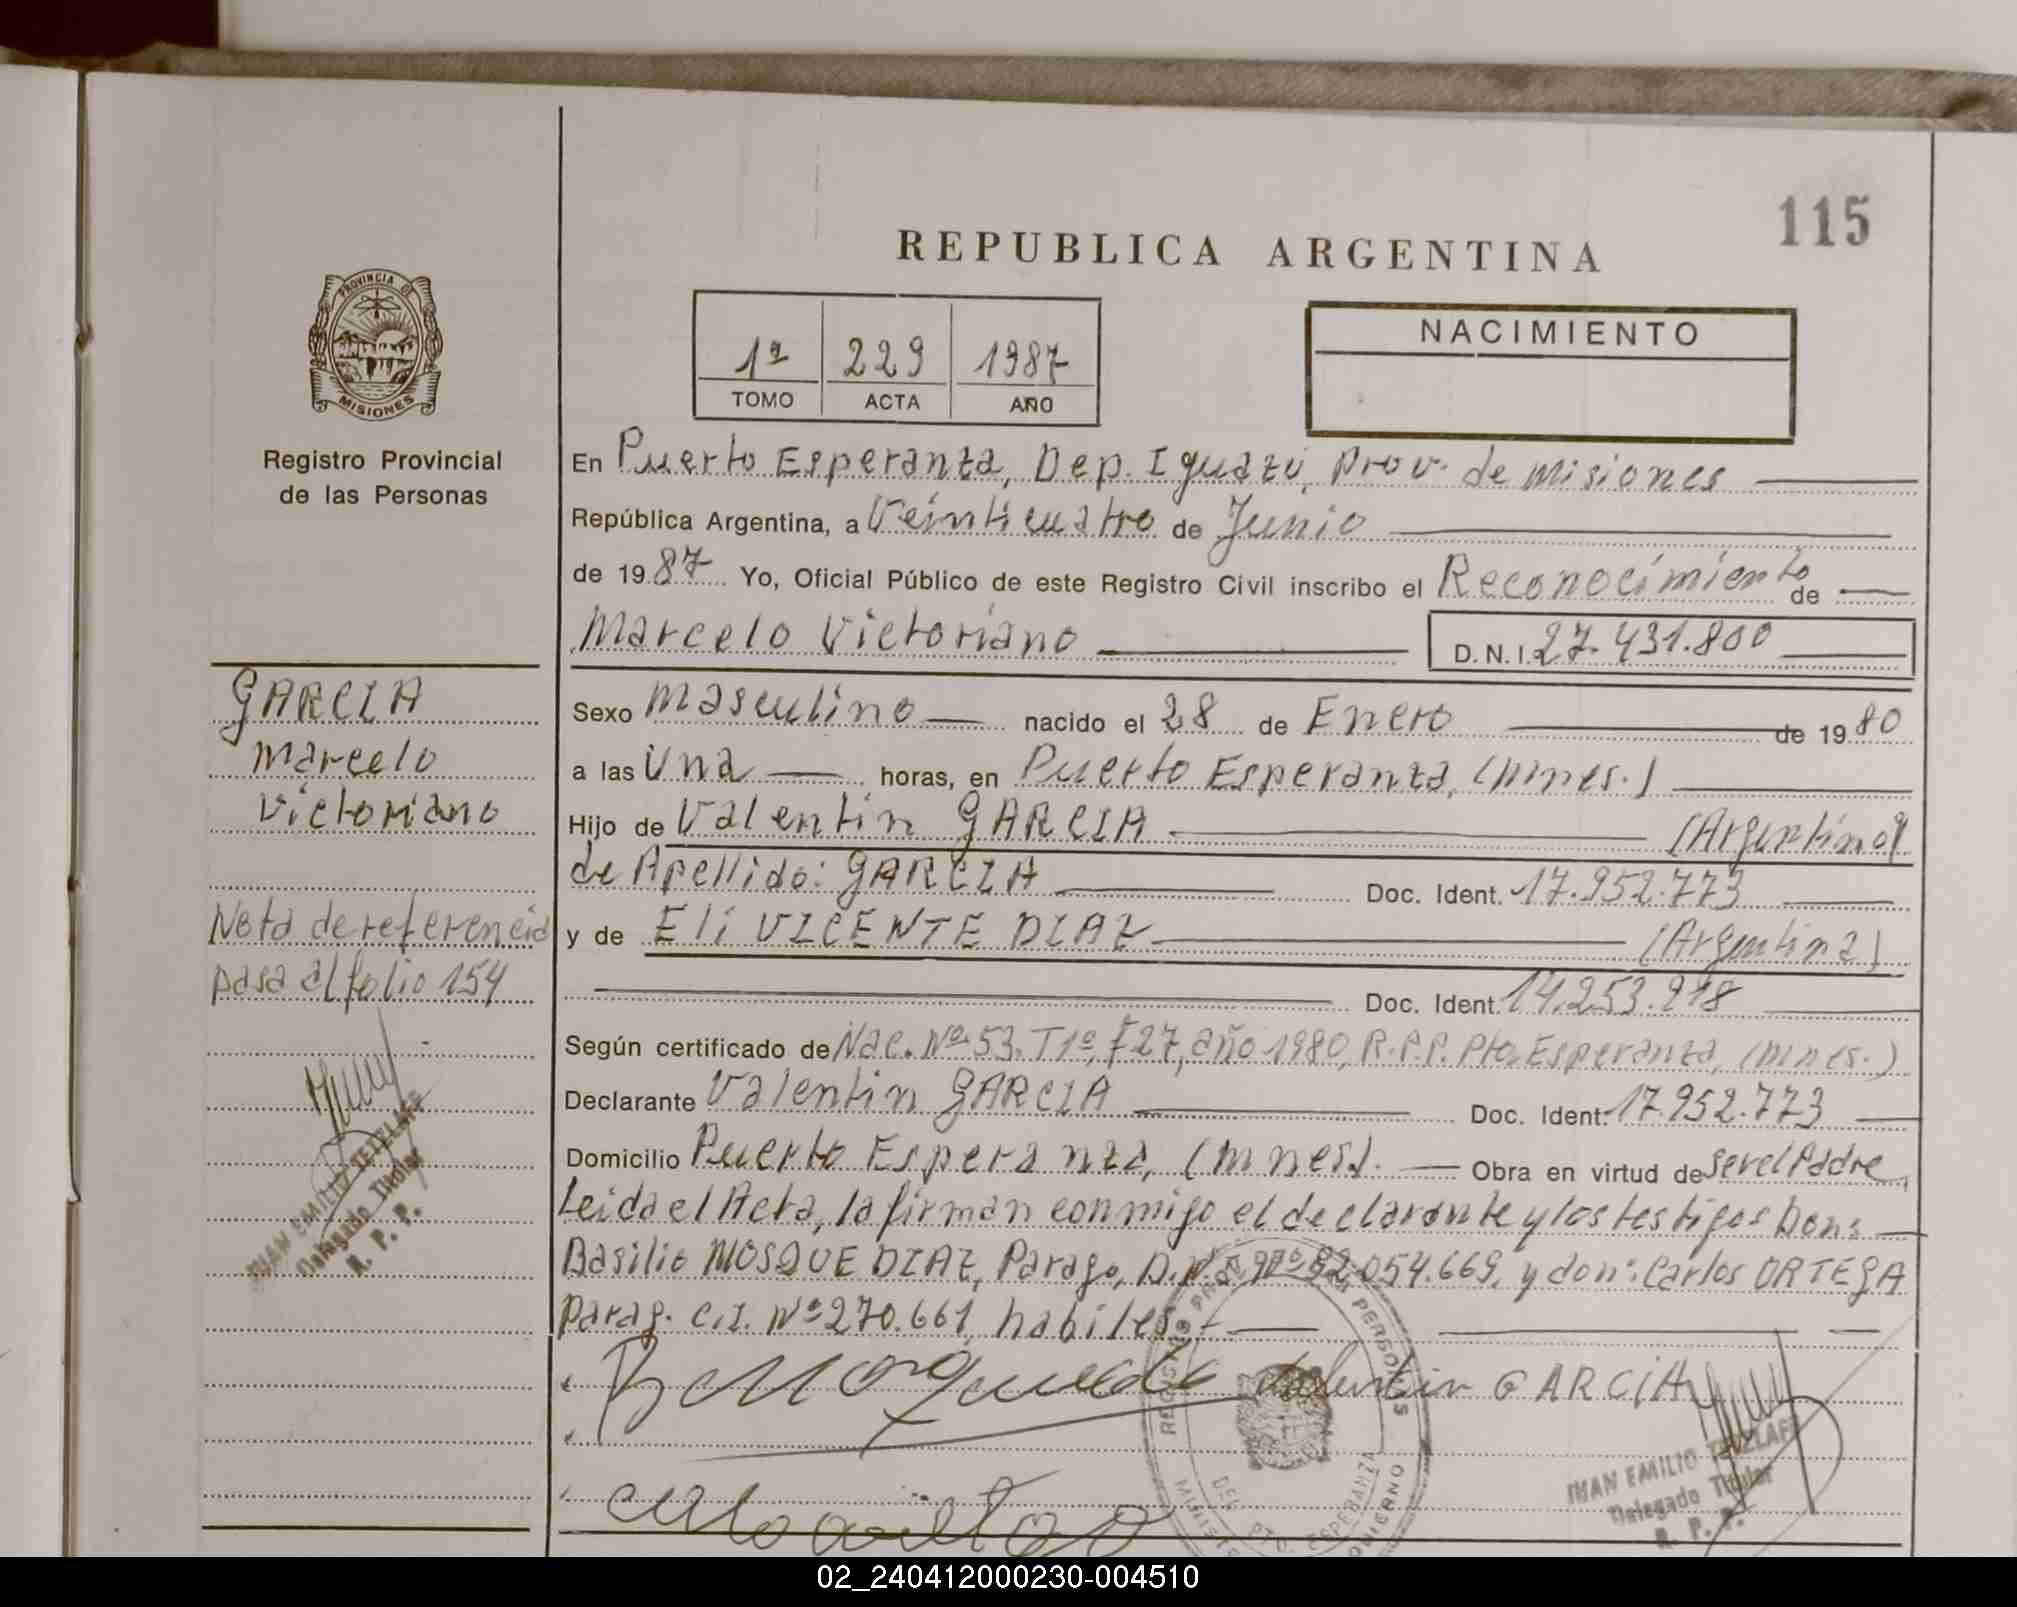 115
REPUBLICA ARGENTINA
PROVINCIA DE
MISIONES
Registro Provincial
de las Personas
1º 229 1987
TOMO ACTA AÑO
NACIMIENTO
En Puerto Esperanza, Dep. Iguazú, Prov. de Misiones
República Argentina, a Veinticuatro de Junio
de 1987 Yo, Oficial Público de este Registro Civil inscribo el Reconocimiento de
Marcelo Victoriano D.N.I. 27.431.800
GARCIA
Marcelo
Victoriano
Nota de referencia
pasa al folio 154
JUAN EMILIO
Delegado Titular
R. P. P.
Sexo Masculino nacido el 28 de Enero de 1980
a las Una horas, en Puerto Esperanza, (Mnes.)
Hijo de Valentin GARCIA (Argentino)
de Apellido: GARCIA Doc. Ident. 17.952.773
y de Eli VICENTE DIAZ (Argentina)
Doc. Ident. 14.253.218
Según certificado de Nac. Nº 53. T1º, F27, año 1980, R.P.P. Pto. Esperanza, (Mnes.)
Declarante Valentin GARCIA Doc. Ident. 17.952.773
Domicilio Puerto Esperanza, (Mnes). Obra en virtud de ser el Padre,
Leida el Acta, la firman conmigo el declarante y los testigos Don:
Basilio MOSQUEDIAZ, Parago, D.N.I. Nº 92.054.669, y don: Carlos ORTEGA
Parag. C.I. Nº 270.661, habiles.-
Valentin GARCIA
JUAN EMILIO
Delegado Titular
R. P. P.
02_240412000230-004510